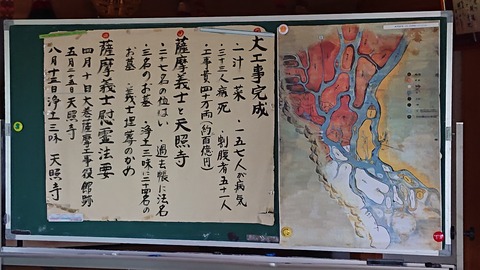 大工事完成
一汁一菜 ・一五七人が病気
・三十三人病死 割腹者五十一人
・工事費四十万両(約百億円)
薩摩義士と天照寺
・二十七名の位はい ・過去帳に法名
・三名のお墓 ・浄土三昧に二十四名の
お墓 ・義士埋葬のかめ
薩摩義士慰霊法要
四月十日大巻薩摩工事役館跡
五月二十五日 天照寺
八月十五日浄土三昧 天照寺